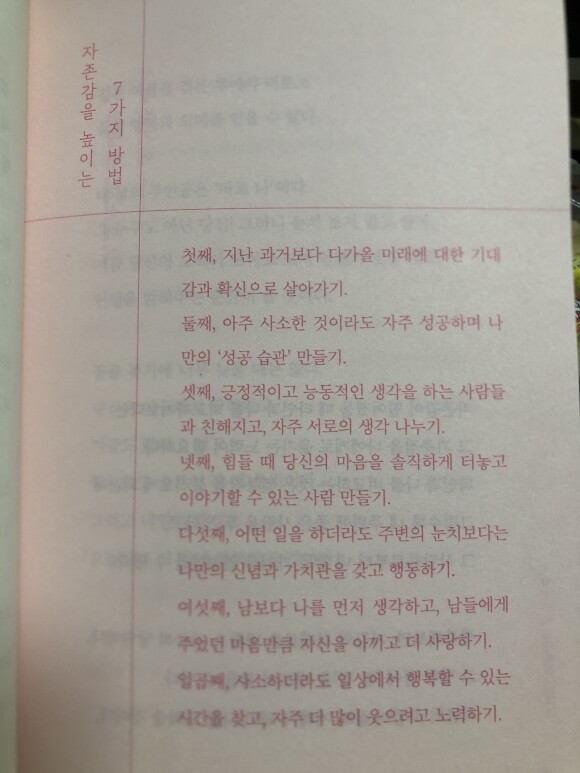 자존감을 높이는
7가지 방법
첫째, 지난 과거보다 다가올 미래에 대한 기대
감과 확신으로 살아가기.
둘째, 아주 사소한 것이라도 자주 성공하며 나
만의 ‘성공 습관’ 만들기.
셋째, 긍정적이고 능동적인 생각을 하는 사람들
과 친해지고, 자주 서로의 생각 나누기.
넷째, 힘들 때 당신의 마음을 솔직하게 터놓고
이야기할 수 있는 사람 만들기.
다섯째, 어떤 일을 하더라도 주변의 눈치보다는
나만의 신념과 가치관을 갖고 행동하기.
여섯째, 남보다 나를 먼저 생각하고, 남들에게
주었던 마음만큼 자신을 아끼고 더 사랑하기.
일곱째, 사소하더라도 일상에서 행복할 수 있는
시간을 찾고, 자주 더 많이 웃으려고 노력하기.